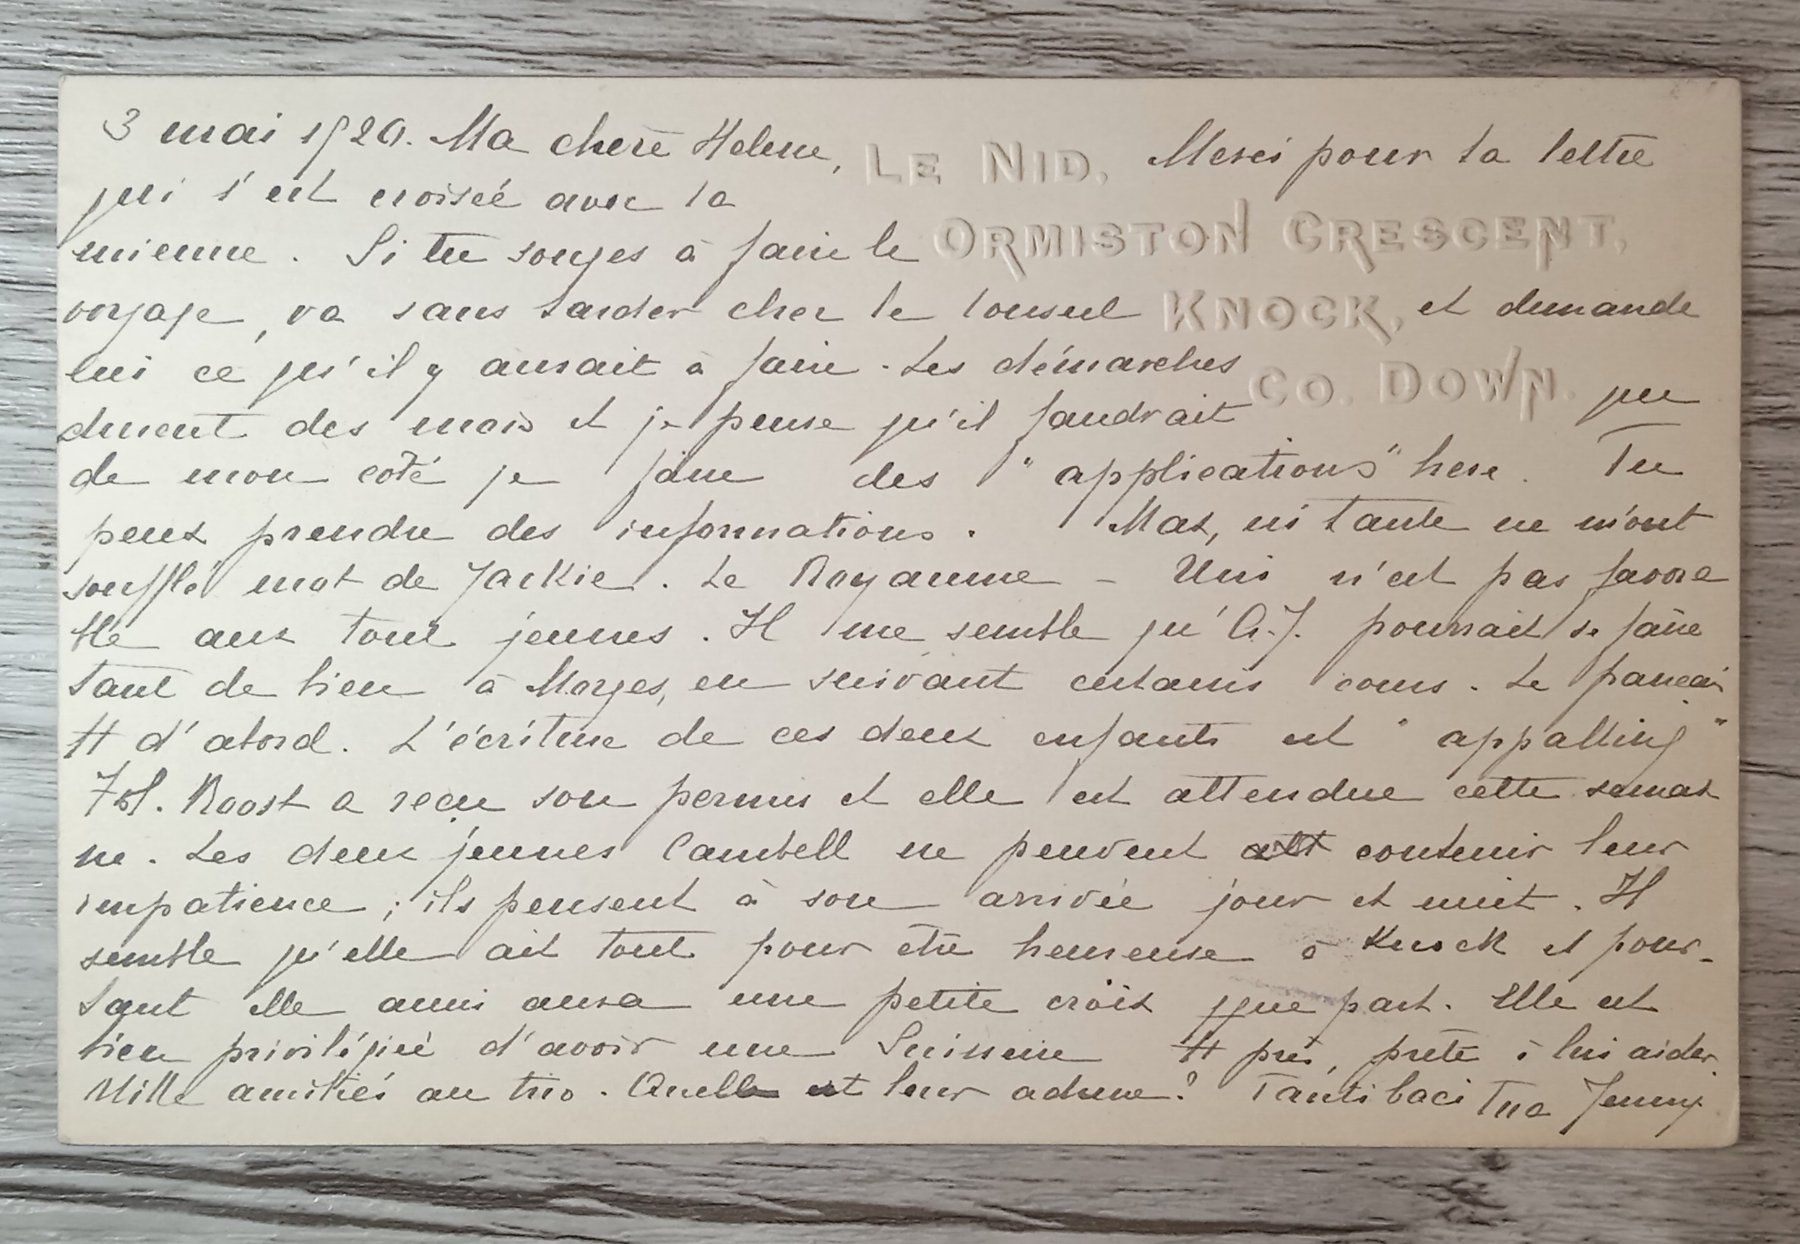 3 mai 1920. Ma chere Helene, LE NID, Merci pour ta lettre
qui s'est croisée avec la
mienne. Si tu songes à faire le ORMISTON CRESCENT,
voyage, va sans tarder chez le Consul KNOCK, et demande
lui ce qu'il y aurait à faire. Les démarches CO. DOWN.
durent des mois et je pense qu'il faudrait que
de mon coté je fasse des "applications" here. Tu
peux prendre des informations. Max, ni tante ne m'ont
soufflé mot de Jackie. Le Royaume-Uni n'est pas favora
ble aux tout jeunes. Il me semble qu' A.J. pourrait se faire
tant de bien à Morges, en suivant certains cours. Le francais
tt d'abord. L'écriture de ces deux enfants est "appalling"
Roost a recu son permis et elle est attendue cette semai
ne. Les deux jeunes Cambell ne peuvent contenir leur
impatience; ils pensent à son arrivée jour et nuit. Il
semble qu'elle ait tout pour être heureuse à Knock et pour-
tant elle aussi aura une petite croix qque part. Elle est
bien privilégiée d'avoir une Suissesse tt près, prete à lui aider.
Mille amitiés au trio. Quelle est leur adresse? Tanti baci Tua Jenny